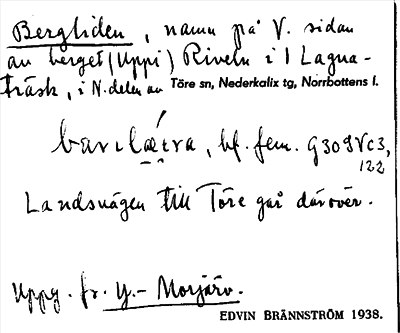 Bergliden, namn på V. sidan
av berget (Uppi) Riveln i Lagna-
träsk, i N. delen av Töre sn, Nederkalix tg, Norrbottens l.
bf. fem. G309Vc3,
122
Landsvägen till Töre går däröver.
Uppg. fr. Y.- Morjärv.
EDVIN BRÄNNSTRÖM 1938.